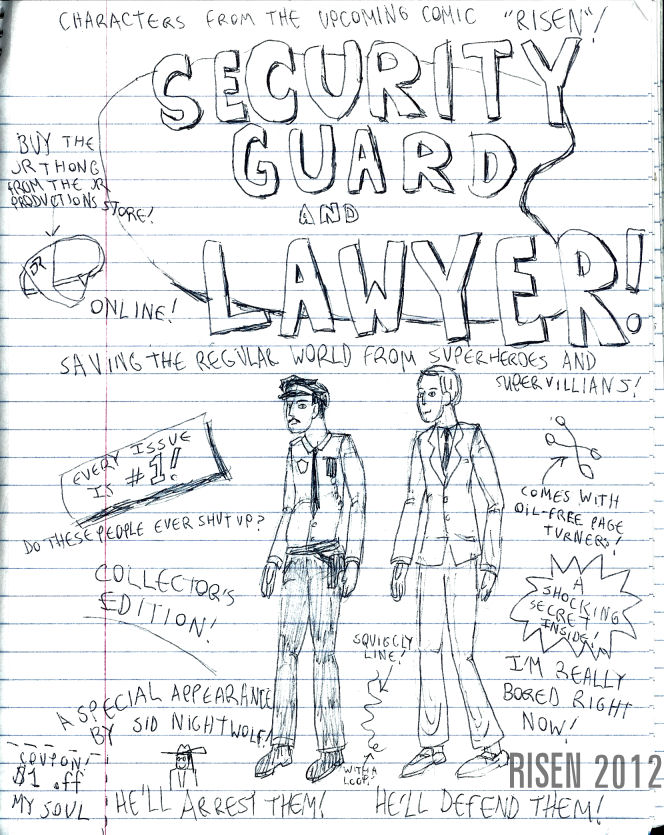 CHARACTERS FROM THE UPCOMING COMIC "RISEN"!
SECURITY
GUARD
AND
LAWYER!
BUY THE
JR THONG
FROM THE JR
PRODUCTIONS STORE!
JR
ONLINE!
SAVING THE REGULAR WORLD FROM SUPERHEROES AND
SUPERVILLIANS!
EVERY ISSUE
IS #1!
DO THESE PEOPLE EVER SHUT UP?
COMES WITH
OIL-FREE PAGE
TURNERS!
COLLECTOR'S
EDITION!
A
SHOCKING
SECRET
INSIDE!
SQUIGGLY
LINE!
WITH A
LOOP!
I'M REALLY
BORED RIGHT
NOW!
A SPECIAL APPEARANCE
BY SID NIGHTWOLF!
COUPON!
$1 off
MY SOUL
HE'LL ARREST THEM!
HE'LL DEFEND THEM!
RISEN 2012